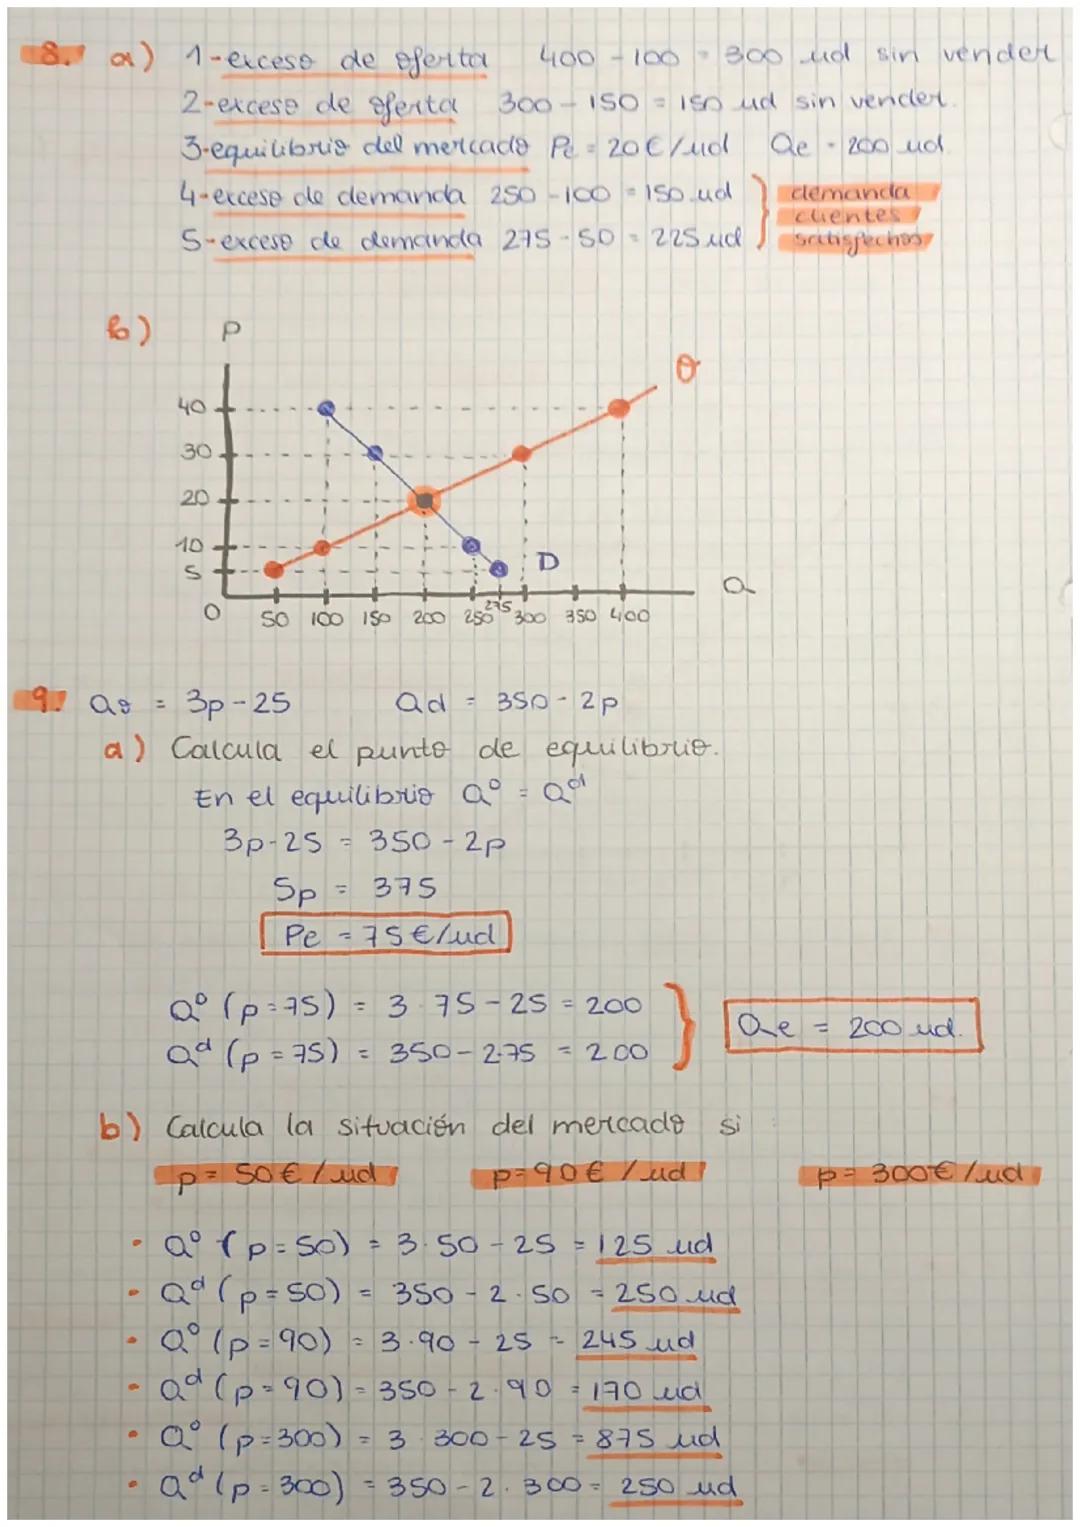 8. a) 1-exceso de oferta 400 - 100 = 300 ud sin vender
2-exceso de oferta 300 - 150 = 150 ud sin vender.
3-equilibrio del mercado Pe = 20€/ud Qe = 200 ud.
4-exceso de demanda 250 - 100 = 150 ud } demanda
clientes
5-exceso de demanda 275 - 50 = 225 ud satisfechos
b) P
O
40
30
20
10
5
D
Q
0 50 100 150 200 250 275 300 350 400
9. Qo = 3p - 25 Qd = 350 - 2p
a) Calcula el punto de equilibrio.
En el equilibrio Q° = Qᵈ
3p - 25 = 350 - 2p
5p = 375
Pe = 75€/ud
Q° (p=75) = 3·75 - 25 = 200
Qᵈ (p=75) = 350 - 2·75 = 200 } Qe = 200 ud.
b) Calcula la situación del mercado si
p = 50€/ud p=90€/ud p= 300€/ud
• Q° (p=50) = 3·50 - 25 = 125 ud
• Qᵈ (p=50) = 350 - 2·50 = 250 ud
• Q° (p=90) = 3·90 - 25 = 245 ud
• Qᵈ (p=90) = 350 - 2·90 = 170 ud
• Q° (p=300) = 3·300 - 25 = 875 ud
• Qᵈ (p=300) = 350 - 2·300 = 250 ud